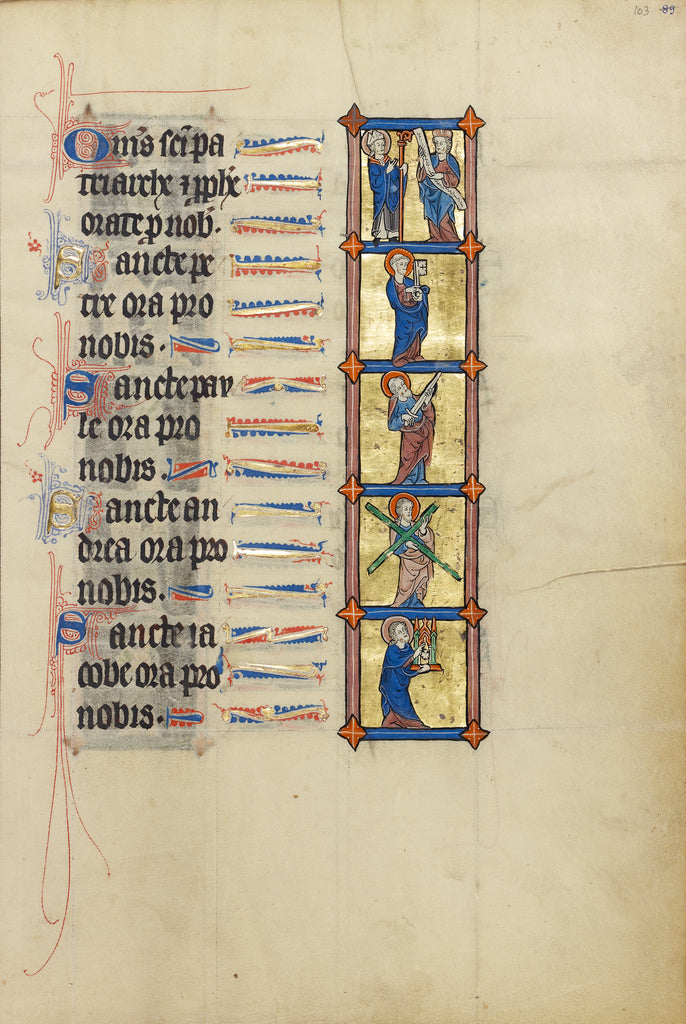 103 89
Om̄s sc̄i pa
triarche ⁊ ꝓph̄e
orate ꝓ nob̄.
Sancte pe
tre ora pro
nobis.
Sancte pau
le ora pro
nobis.
Sancte an
drea ora pro
nobis.
Sancte ia
cobe ora pro
nobis.